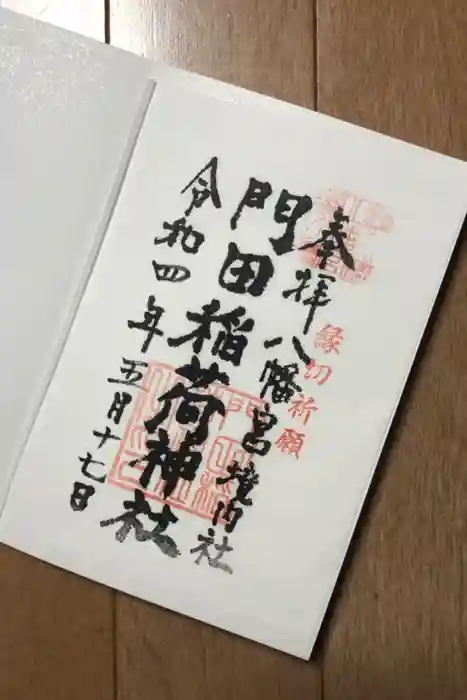 奉拝
八幡宮境内社
縁切祈願
門田稲荷神社
令和四年五月十七日